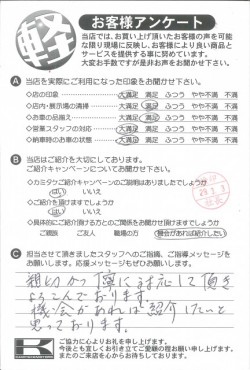 軽
お客様アンケート
当店では、お買い上げ頂いたお客様の声を可能
な限り現場に反映し、お客様により良い商品と
サービスを提供する事に努めています。
大変お手数ですが是非お声をお聞かせ下さい。
A 当店を実際にご利用になった印象をお聞かせ下さい。
・店の印象 大満足 満足 ふつう やや不満 不満
・店内・展示場の清掃 大満足 満足 ふつう やや不満 不満
・お車の品揃え 大満足 満足 ふつう やや不満 不満
・営業スタッフの対応 大満足 満足 ふつう やや不満 不満
・納車時のお車の状態 大満足 満足 ふつう やや不満 不満
B 当店はご紹介を大切にしております。
ご紹介キャンペーンについてお聞かせ下さい。
・カミタケご紹介キャンペーンのご説明はありましたでしょうか
はい いいえ
・ご紹介を頂けますでしょうか
はい いいえ
・具体的にご紹介頂ける方とのご関係をお聞かせ頂けますでしょうか
ご親族 ご友人 職場の方 機会があれば紹介したい
C 担当させて頂きましたスタッフへのご指摘、ご指導メッセージを
お願いします。応援メッセージもぜひお願いします。
親切かつ丁寧に対応して頂き
よろこんでおります。
機会があれば紹介したいと
思っております。
K
ご協力に心よりお礼を申し上げます。
今後とも宜しくお引き立てご愛顧の程お願い申し上げます。
またのご来店を心からお待ちしております。